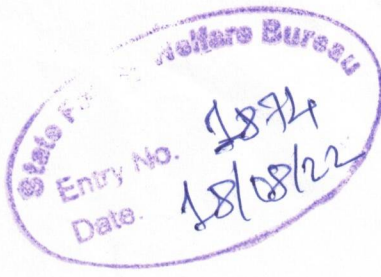 State F Welfare Bureau
Entry No. 1874
Date. 18/08/22